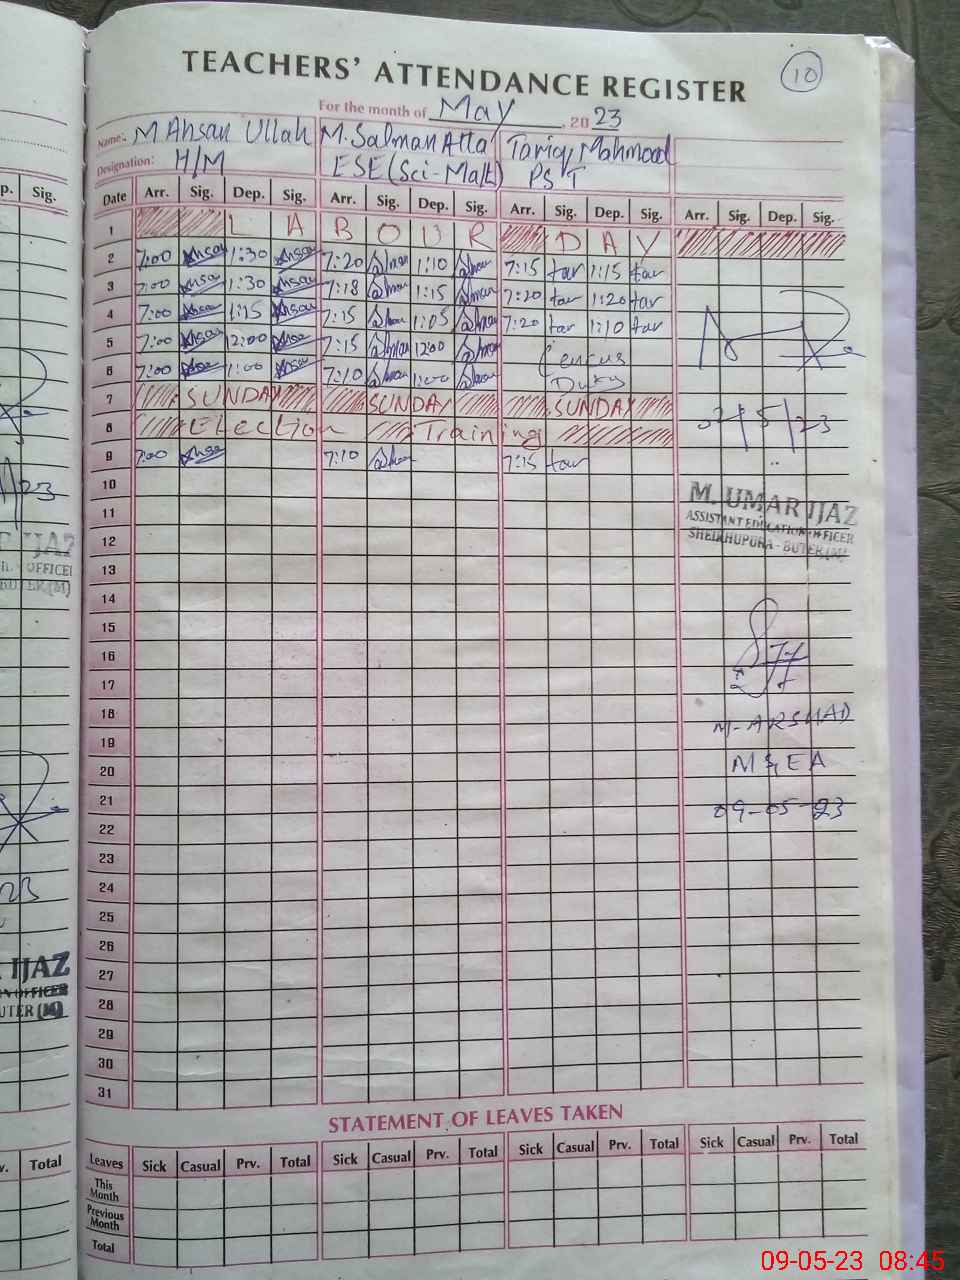 TEACHERS' ATTENDANCE REGISTER
10
For the month of May, 2023
Name: M Ahsan Ullah M. Salman Atta Tariq Mahmood
Designation: H/M ESE (Sci-Math) PST
Date Arr. Sig. Dep. Sig. Arr. Sig. Dep. Sig. Arr. Sig. Dep. Sig. Arr. Sig. Dep. Sig.
1 L A B O U R D A Y
2 7:00 Ahsan 1:30 Ahsan 7:20 Salman 1:10 Salman 7:15 tar 1:15 tar
3 7:00 Ahsan 1:30 Ahsan 7:18 Salman 1:15 Salman 7:20 tar 1:20 tar
4 7:00 Ahsan 1:15 Ahsan 7:15 Salman 1:05 Salman 7:20 tar 1:10 tar
5 7:00 Ahsan 12:00 Ahsan 7:15 Salman 12:00 Salman Census
6 7:00 Ahsan 1:00 Ahsan 7:10 Salman 1:00 Salman Duty
7 SUNDAY SUNDAY SUNDAY
8 Election Training
9 7:00 Ahsan 7:10 Salman 7:15 tar
10
11
12
13
14
15
16
17
18
19
20
21
22
23
24
25
26
27
28
29
30
31
/5/23
M. UMAR IJAZ
ASSISTANT EDUCATION OFFICER
SHEIKHUPURA - BUTER (M)
M- ARSHAD
M & EA
09-05-23
STATEMENT OF LEAVES TAKEN
Leaves Sick Casual Prv. Total Sick Casual Prv. Total Sick Casual Prv. Total Sick Casual Prv. Total
This Month
Previous Month
Total
p. Sig.
23
IJAZ
OFFICER
BUTER (M)
23
IJAZ
ON OFFICER
UTER (M)
v. Total
09-05-23 08:45